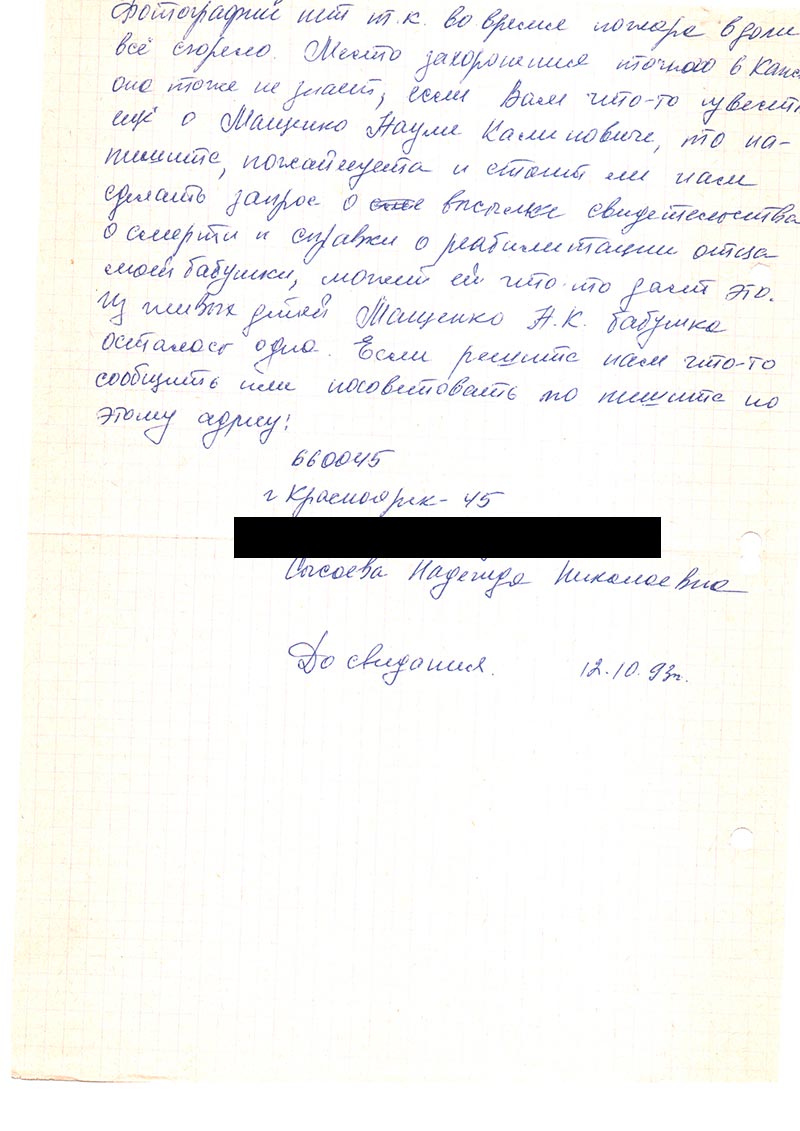 Фотографий нет т.к. во время пожара в доме
всё сгорело. Место захоронения точного в Канс
она тоже не знает, если Вам что-то извест
ещё о Мащенко Науме Калиновиче, то на-
пишите, пожалуйста и стоит ли нам
сделать запрос о высылке свидетельства
о смерти и справки о реабилитации отца
моей бабушки, может ей что-то даст это.
Из живых детей Мащенко Н.К. бабушка
осталась одна. Если решите нам что-то
сообщить или посоветовать то пишите по
этому адресу:
660045
г Красноярск-45
Сысоева Надежда Николаевна
До свидания. 12.10.93г.